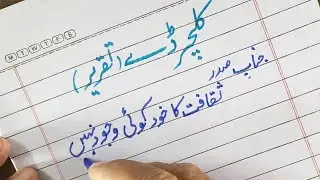 M T W T F S
کلچر ڈے (تقریر)
جناب صدر
ثقافت کا خود کوئی وجود نہیں